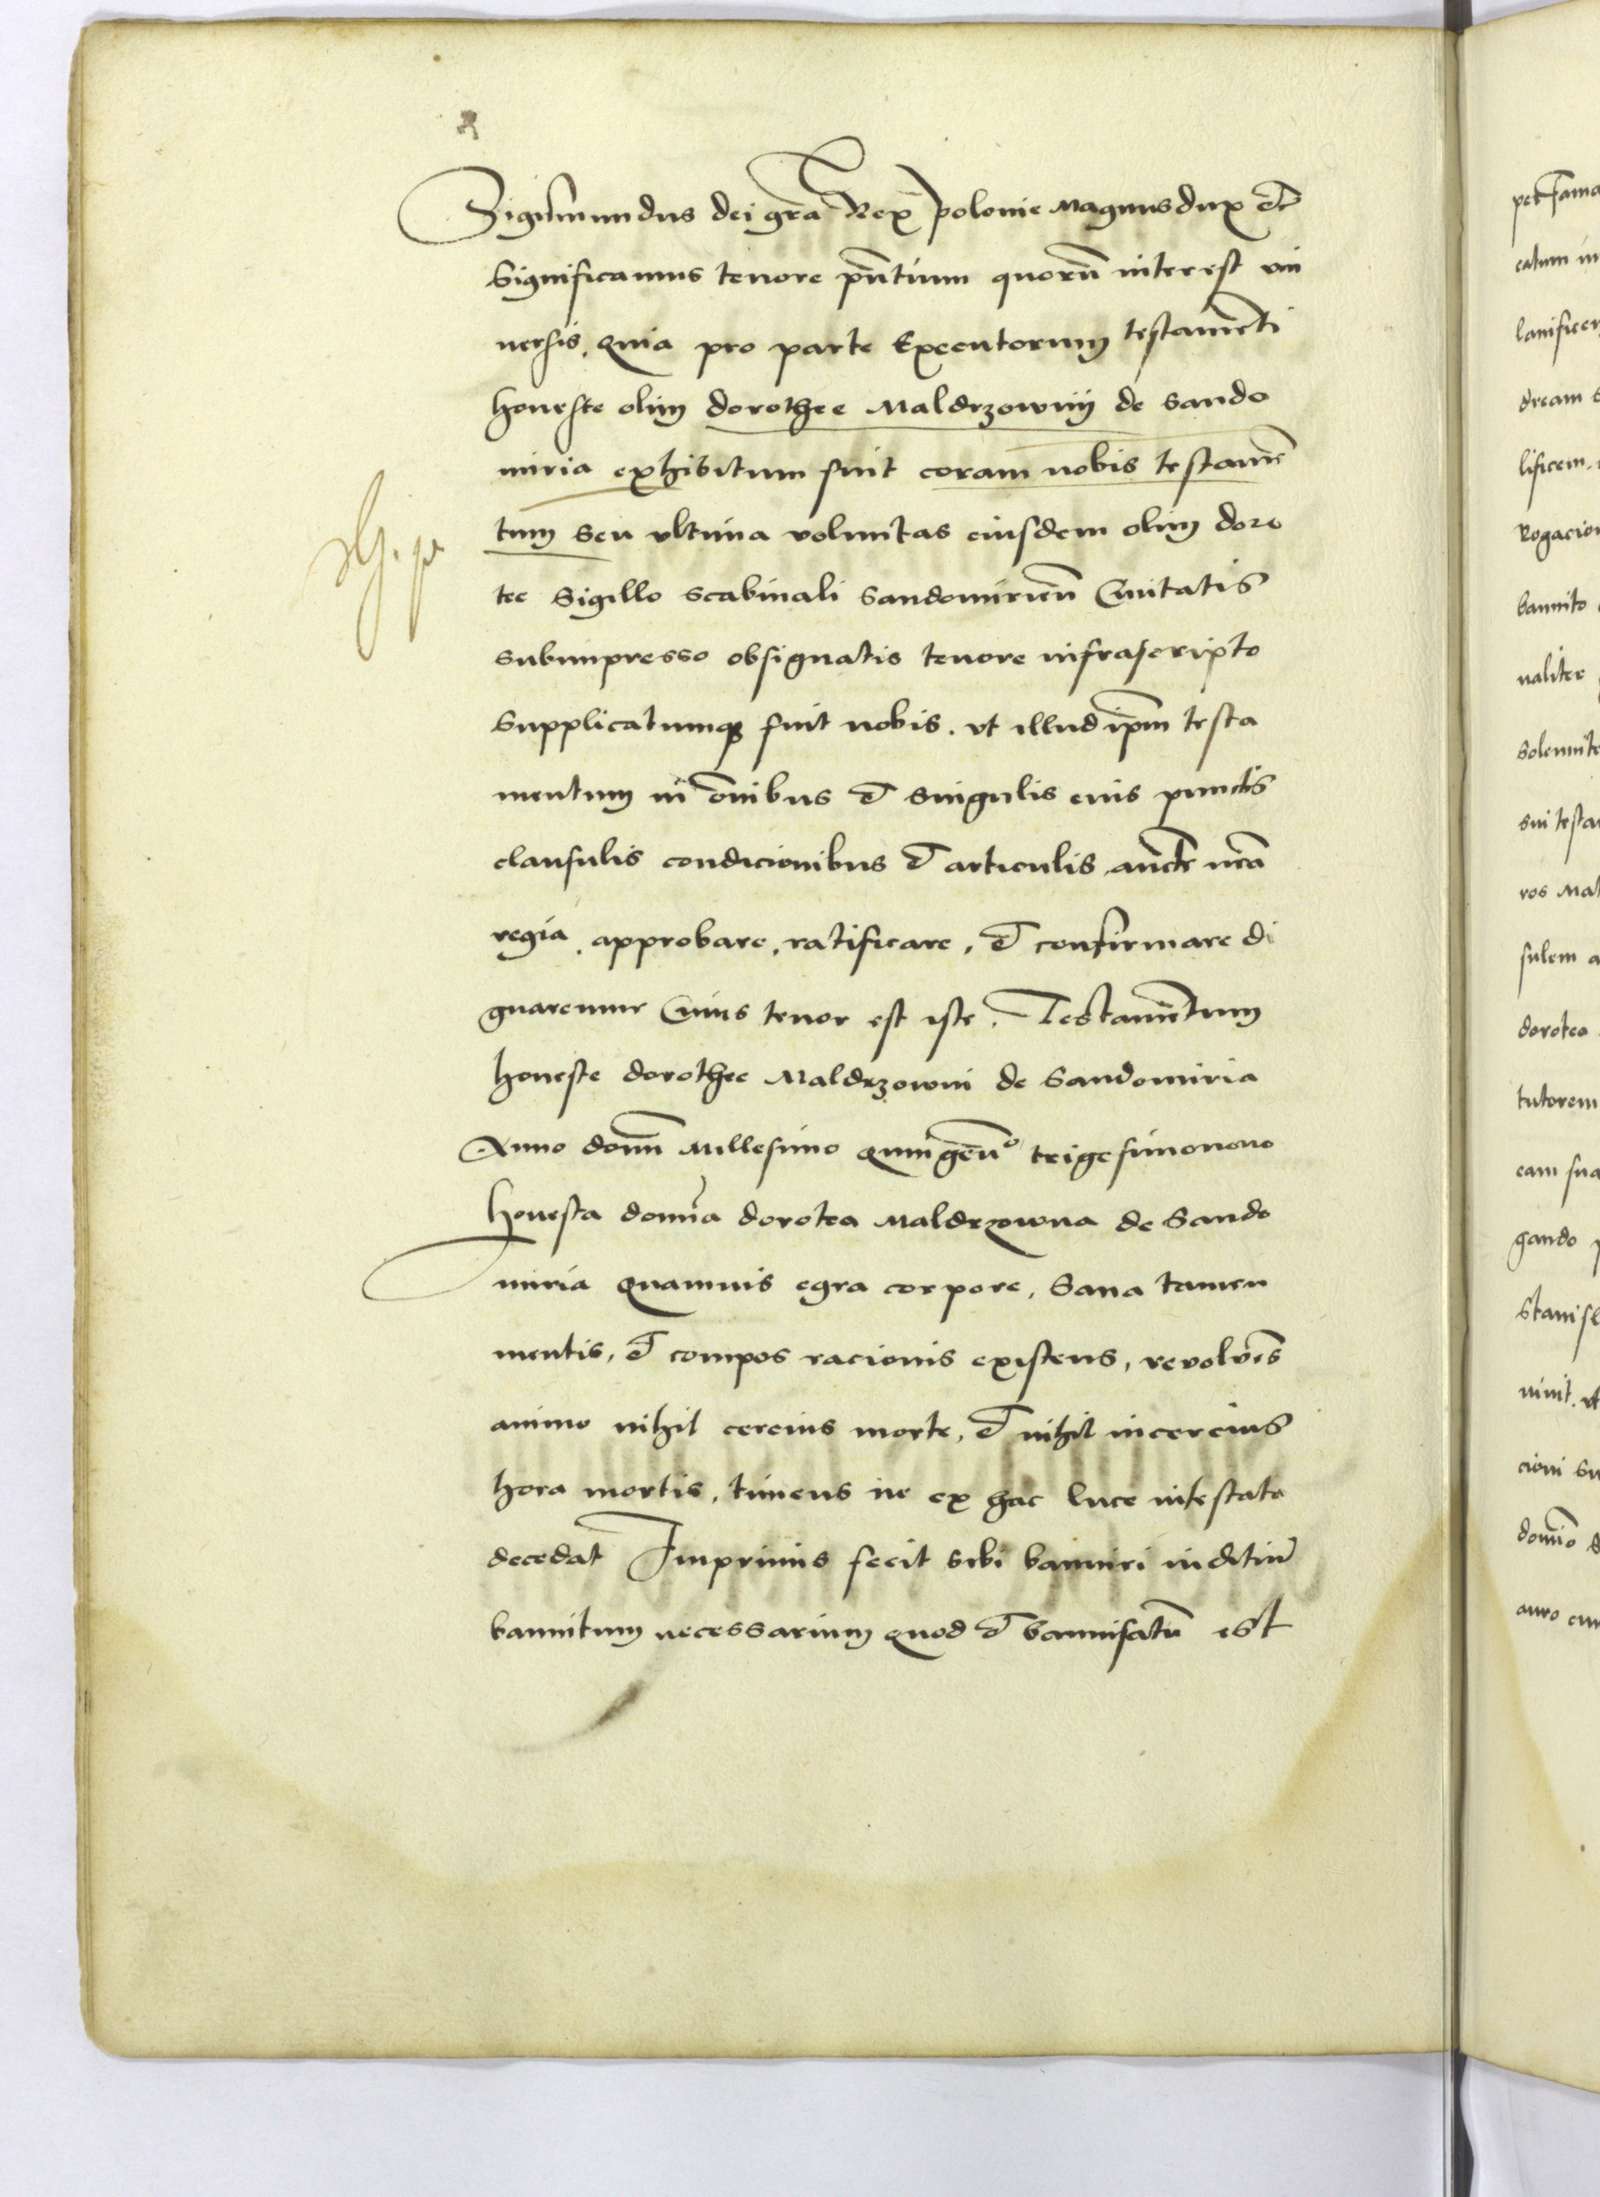 Sigismundus dei gr̄a Rex polonie Magnus dux etc̄
Significamus tenore p̄ntium quorū interest vni
uersis, Quia pro parte Executorum testamēti
honeste olim dorothee Maldrzownij de Sando
miria exhibitum fuit coram nobis testamē
tum seu vltima voluntas eiusdem olim doro
tee Sigillo scabinali Sandomirieñ Ciuitatis
subimpresso obsignatis tenore infrascripto
Supplicatumq; fuit nobis. vt illud ip̄m testa
mentum in ōnibus et singulis eius punctis
clausulis condicionibus et articulis auctē nr̄a
regia, approbare, ratificare, et confirmare di
gnaremur Cuius tenor est iste. Testamētum
honeste dorothee Maldrzowni de Sandomiria
Anno domī Millesimo Quingeñº trigesimonono
honesta domīa dorotea Maldrzowna de Sando
miria Quamuis egra corpore, Sana tamen
mentis, et compos racionis existens, reuolvēs
animo nihil cercius morte, et nihil incercius
hora mortis, timens ne ex hac luce intestata
decedat Imprimis fecit sibi banniri iuditiū
bannitum necessarium Quod et bannitū est
petr
catum
lanificem
lificem
Rogacion
bannito
naliter
sui testa
ros Mal
sulem
dorotea
tutorem
eam sua
gando
Stanisl
cioni
domīo
auro